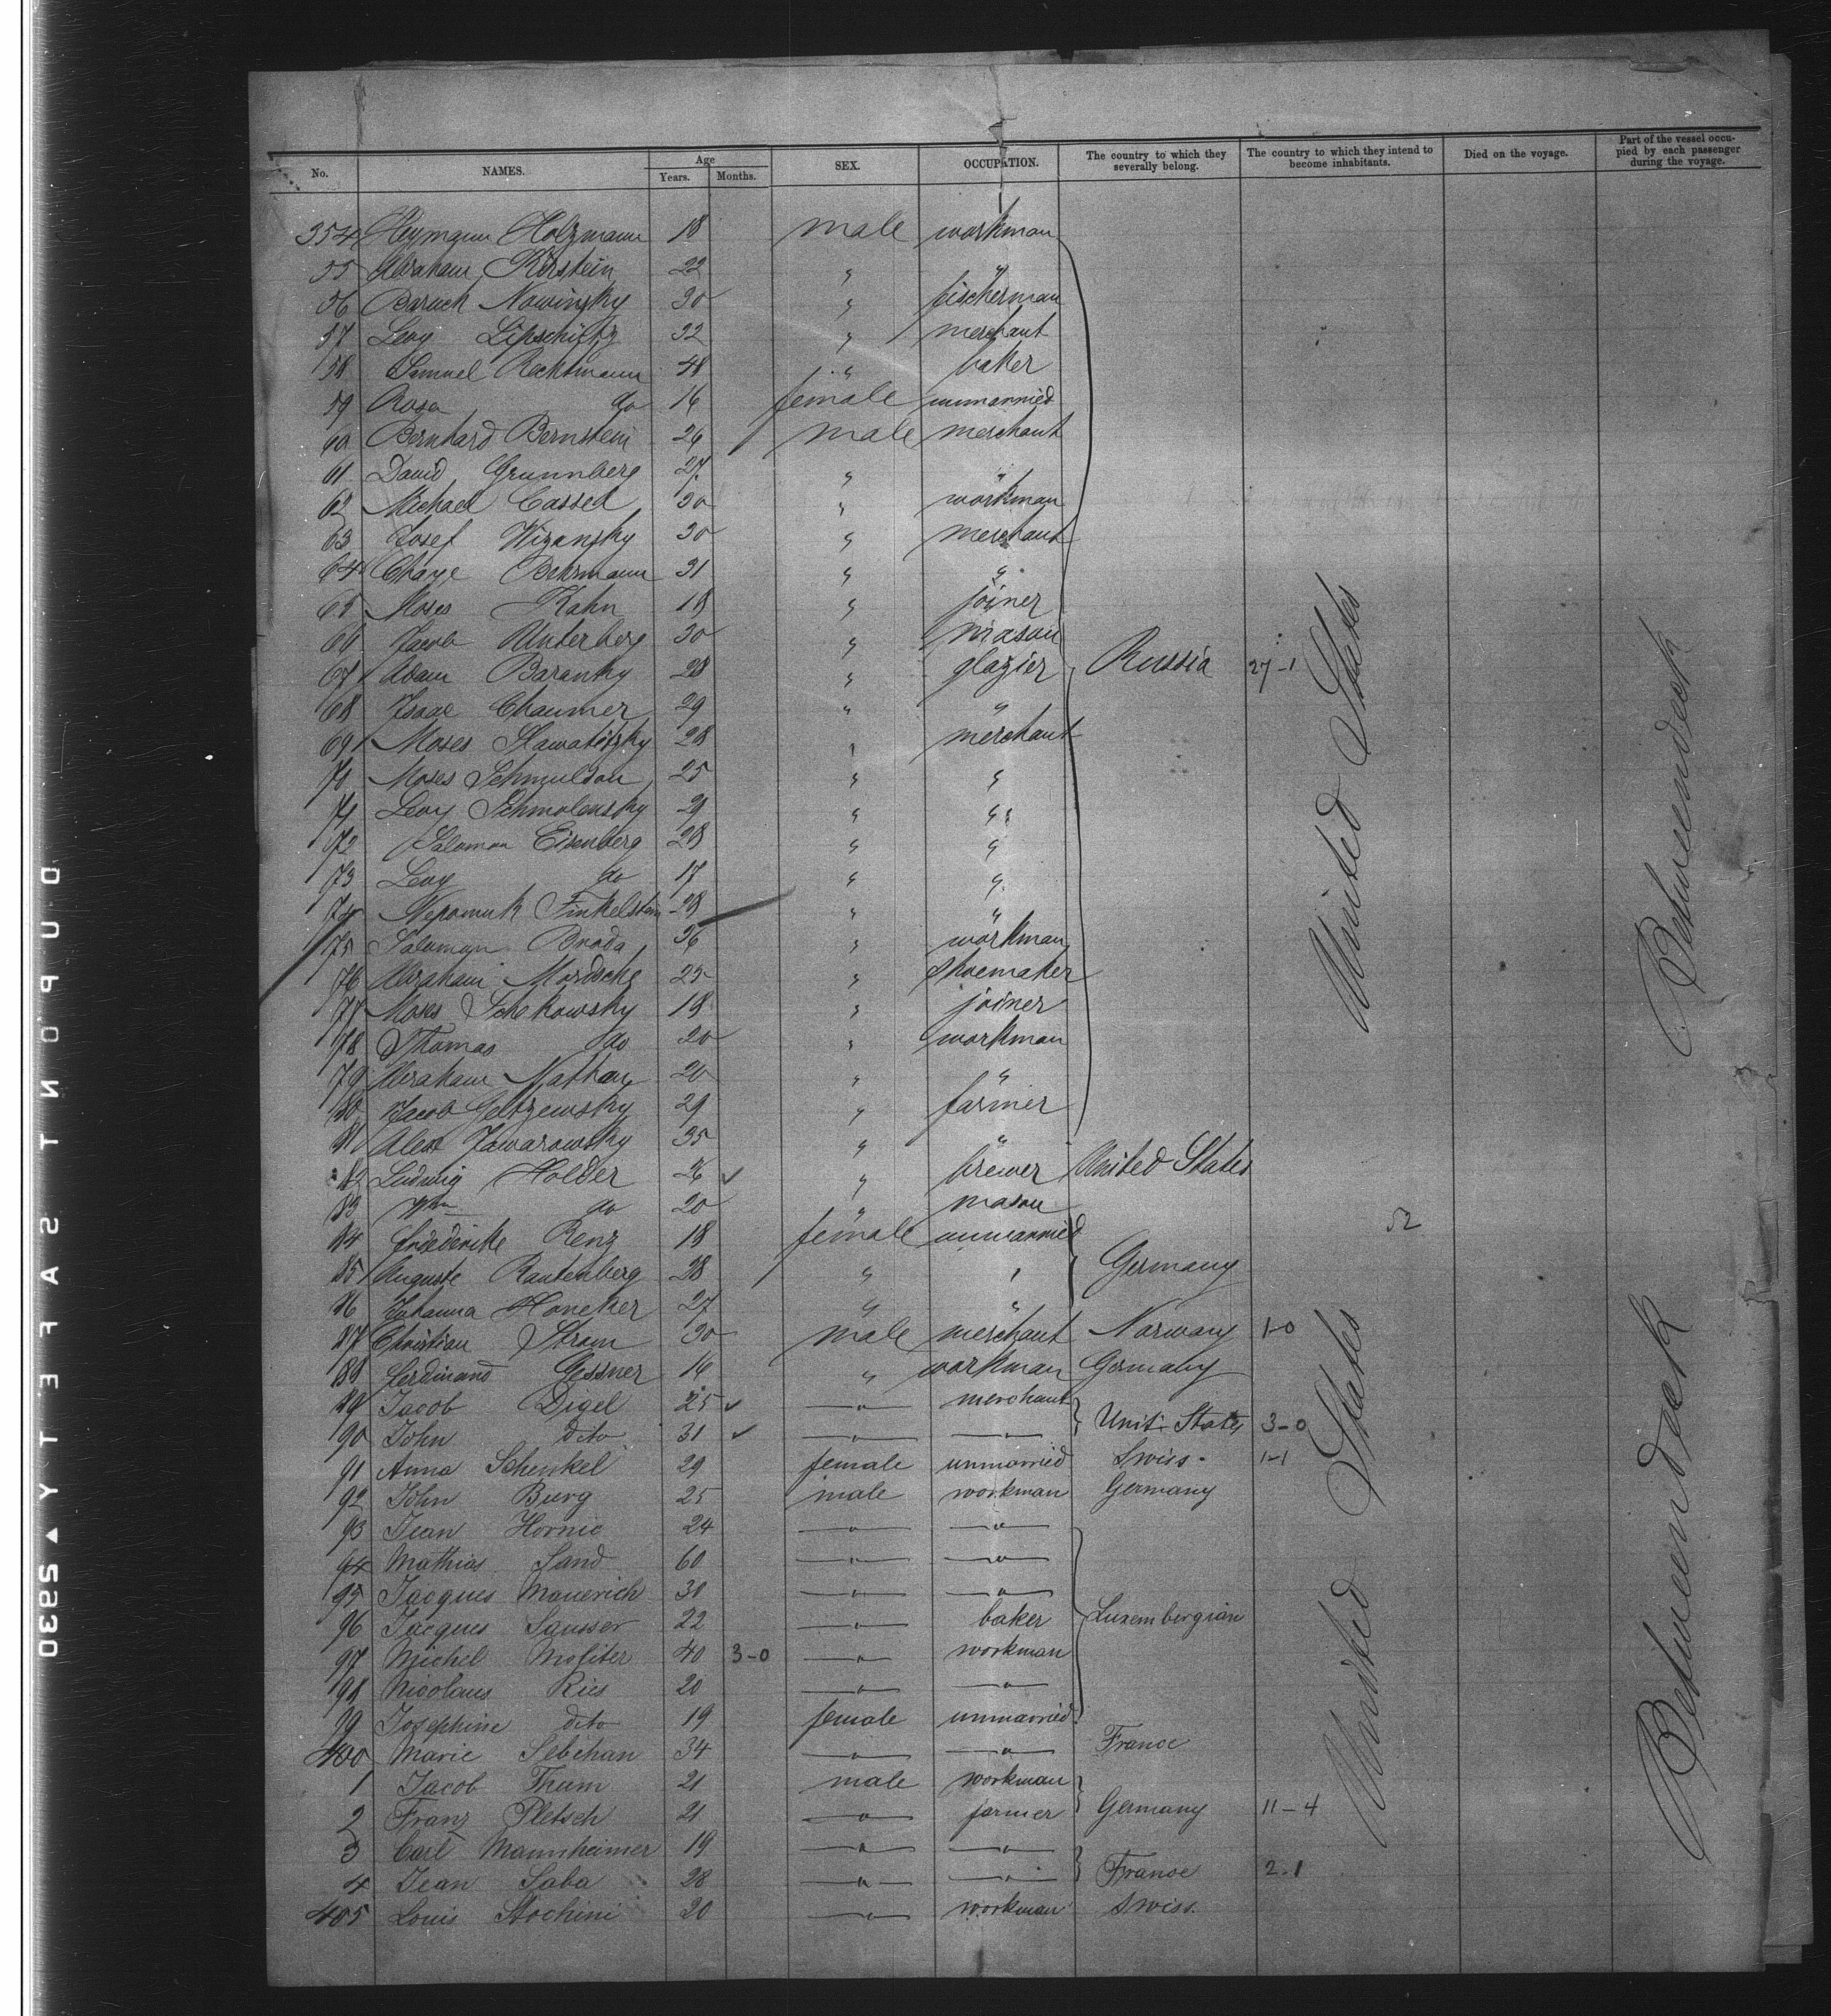 No. NAMES. Age Years. Months. SEX. OCCUPATION. The country to which they severally belong. The country to which they intend to become inhabitants. Died on the voyage. Part of the vessel occupied by each passenger during the voyage.
354 Heymann Holzmann 18 male workman
55 Abraham Kirstein 22 " "
56 Baruch Nowinsky 30 " fischerman
57 Levy Lipschitz 32 " merchant
58 Samuel Rechtmann 48 " baker
59 Rosa do 16 female unmarried
60 Bernhard Bernstein 26 male merchant
61 David Grunnberg 27 " "
62 Michael Cassel 30 " workman
63 Josef Wizansky 30 " merchant
64 Chaye Behrmann 31 " "
65 Moses Kahn 18 " joiner
66 Jacob Unterberg 30 " mason
67 Adam Baransky 28 " glazier Russia 27-1 United States Betweendeck
68 Isaac Chaumer 29 " "
69 Moses 28 " merchant
70 Moses Schmulson 25 " "
71 Levy Schmolensky 29 " "
72 Salomon Eisenberg 28 " "
73 Levy do 17 " "
74 Nepomuk Finkelstein 28 " "
75 Salomon Broda 36 " workman
76 Abraham Mordsche 25 " shoemaker
77 Moses Schekowsky 18 " joiner
78 Thomas do 20 " workman
79 Abraham Nathan 20 " "
80 Jacob 29 " farmer
81 Alex Jawarowsky 35 " "
82 Ludwig Holder 26 ✓ " brewer United States
83 Wm do 20 " mason
84 Friedericke Renz 18 female unmarried
85 Auguste Rautenberg 28 " " Germany
86 Johanna Honcker 27 " "
87 Christian Strom 30 male merchant Norway 1-0
88 Ferdinand Gessner 16 " workman Germany
89 Jacob Digel 25 ✓ " merchant
90 John dito 31 ✓ " " Unit States 3-0
91 Anna Schenkel 29 female unmarried Swiss. 1-1
92 John Burg 25 male workman Germany
93 Jean Hornic 24 " "
94 Mathias Sand 60 " "
95 Jacques Mauerich 30 " "
96 Jacques Sausser 22 " baker Luxembergian United States Betweendeck
97 Michel Mositer 40 3-0 " workman
98 Nicolaus Ries 20 " "
99 Josephine dito 19 female unmarried
400 Marie Sebchan 34 " " France
1 Jacob Thum 21 male workman
2 Franz Pletsch 21 " farmer Germany 11-4
3 Carl Mannheimer 19 " "
4 Jean Saba 28 " " France 2-1
405 Louis Stochini 20 " workman Swiss.
DUPONT SAFETY ◄ 2930